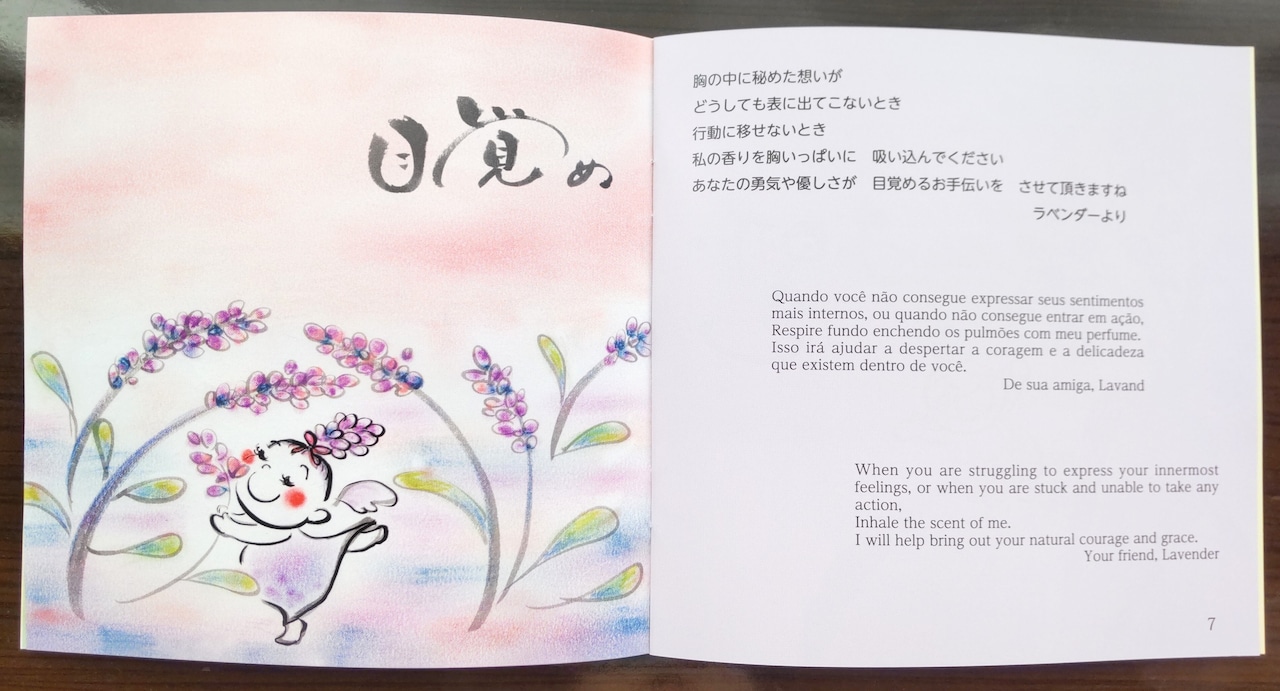 目覚め
胸の中に秘めた想いが
どうしても表に出てこないとき
行動に移せないとき
私の香りを胸いっぱいに　吸い込んでください
あなたの勇気や優しさが　目覚めるお手伝いを　させて頂きますね
ラベンダーより
Quando você não consegue expressar seus sentimentos
mais internos, ou quando não consegue entrar em ação,
Respire fundo enchendo os pulmões com meu perfume.
Isso irá ajudar a despertar a coragem e a delicadeza
que existem dentro de você.
De sua amiga, Lavand
When you are struggling to express your innermost
feelings, or when you are stuck and unable to take any
action,
Inhale the scent of me.
I will help bring out your natural courage and grace.
Your friend, Lavender
7